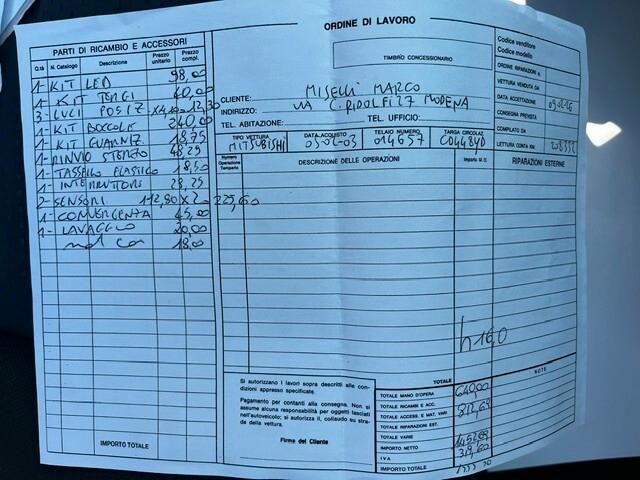 ORDINE DI LAVORO
PARTI DI RICAMBIO E ACCESSORI
Q.tà N. Catalogo Descrizione Prezzo unitario Prezzo compl.
1- KIT LED 98,00
1- KIT TERGI 40,00
3- LUCI POSIZ X4,10 12,30
1- KIT BOCCOLE 240,00
1- KIT GUARNIZ. 18,75
1- RINVIO STERZO 48,25
1- TASSELLO ELASTICO 18,50
1- INTERRUTTORI 28,25
2- SENSORI 112,80 X 2 225,60
1- CONVERGENZA 45,00
1- LAVAGGIO 20,00
18,00
IMPORTO TOTALE
TIMBRO CONCESSIONARIO
Codice venditore
Codice modello
ORDINE RIPARAZIONI N.
VETTURA VENDUTA DA
DATA ACCETTAZIONE
CONSEGNA PREVISTA
COMPILATO DA
LETTURA CONTA KM
CLIENTE: MISELLI MARCO
INDIRIZZO: VIA C. RIDOLFI 27 MODENA
TEL. ABITAZIONE: TEL. UFFICIO:
TIPO VETTURA DATA ACQUISTO TELAIO NUMERO TARGA CIRCOLAZ.
MITSUBISHI 05-02-03 014657
Numero Operazione Tempario DESCRIZIONE DELLE OPERAZIONI Importo M. O. RIPARAZIONI ESTERNE
h 16,0
TOTALE
NOTE
Si autorizzano i lavori sopra descritti alle condizioni appresso specificate.
Pagamento per contanti alla consegna. Non si assume alcuna responsabilità per oggetti lasciati nell'autoveicolo; si autorizza il, collaudo su strada della vettura.
Firma del Cliente
TOTALE MANO D'OPERA 640,00
TOTALE RICAMBI E ACC. 812,65
TOTALE ACCESS. E MAT. VARI
TOTALE RIPARAZIONI EST.
TOTALE VARIE
IMPORTO NETTO
IVA 319,60
IMPORTO TOTALE